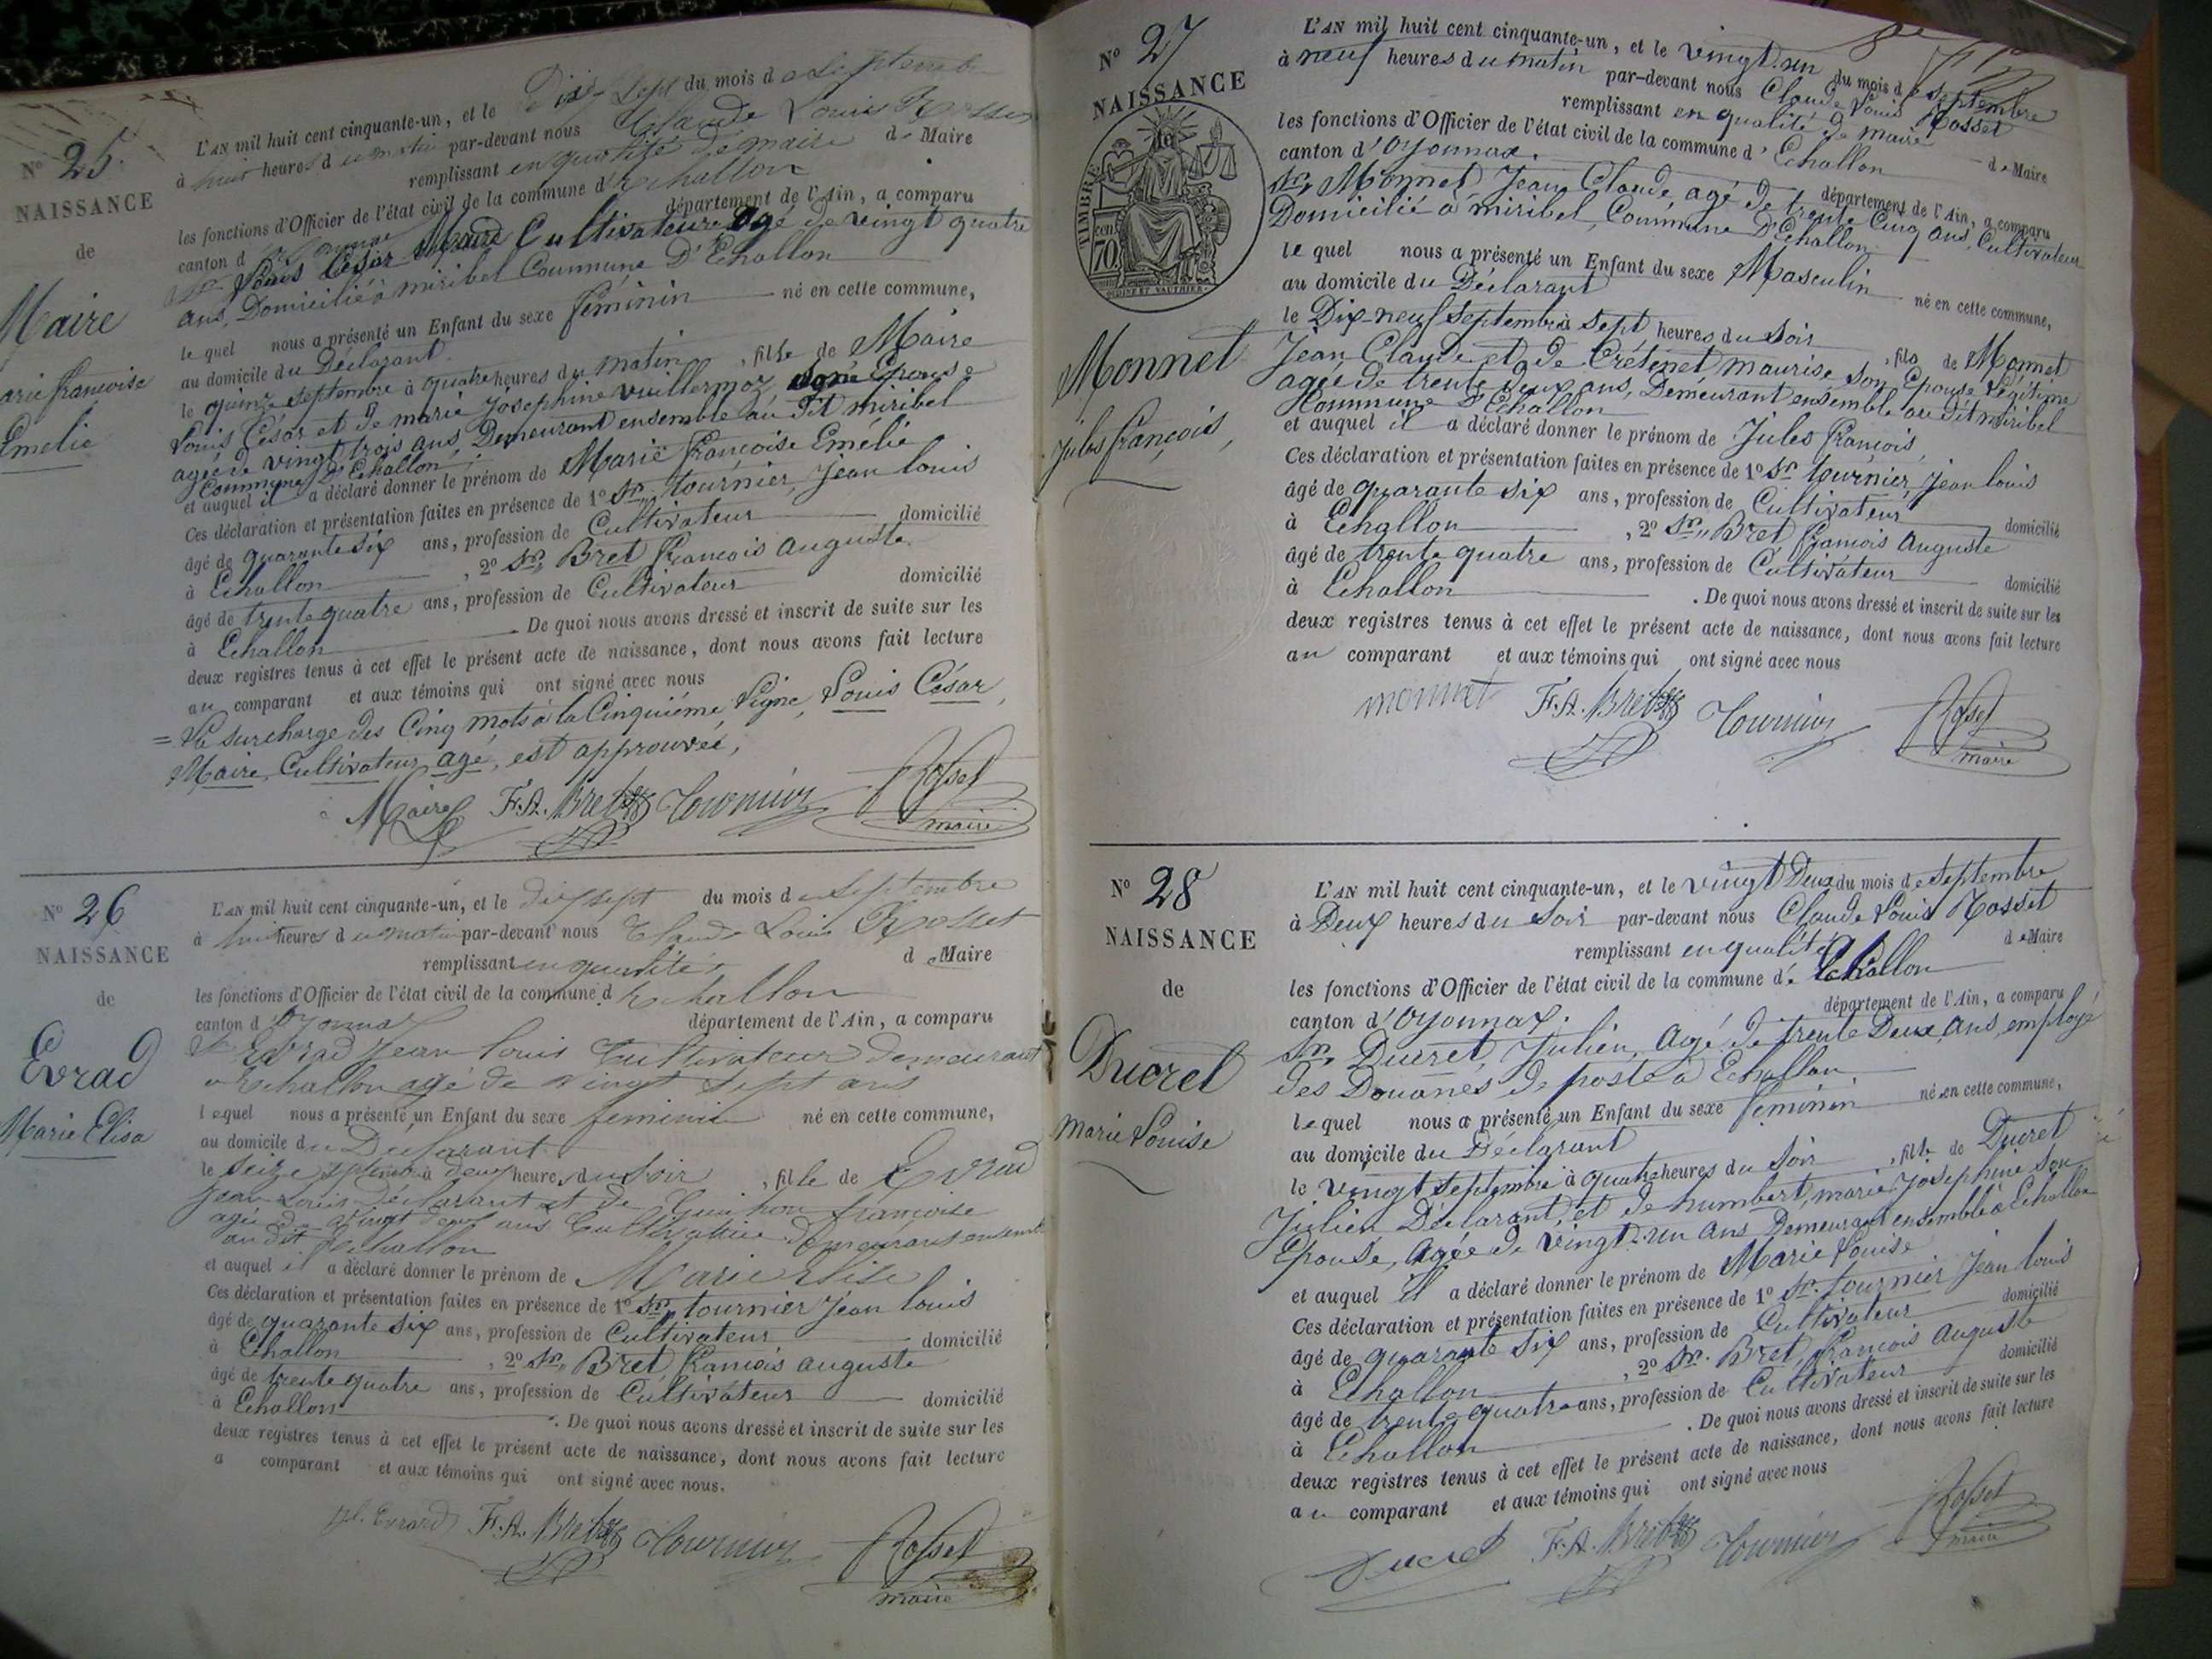 N° 25.
NAISSANCE
de
Maire
Marie françoise
Emelie
L'AN mil huit cent cinquante-un, et le Dix Sept du mois de Septembre
à huit heures du matin par-devant nous Claude Louis Rosset
remplissant en qualité de maire de Maire
les fonctions d'Officier de l'état civil de la commune d'Echallon
canton d' département de l'Ain, a comparu
Sr. Louis César Maire Cultivateur agé de vingt quatre
ans, Domicilié à miribel Commune D'Echallon
le quel nous a présenté un Enfant du sexe féminin né en cette commune,
au domicile du Déclarant.
le quinze septembre à quatre heures du matin, fille de Maire
Louis César et de marie josephine vuillermoz son Epouse
agée de vingt trois ans, Demeurant ensemble au Dit miribel
Commune D'Echallon,
et auquel il a déclaré donner le prénom de Marie françoise Emélie
Ces déclaration et présentation faites en présence de 1° Sr. tournier, Jean louis
âgé de quarante six ans, profession de Cultivateur domicilié
à Echallon, 2° Sr. Bret françois auguste
âgé de trente quatre ans, profession de Cultivateur domicilié
à Echallon. De quoi nous avons dressé et inscrit de suite sur les
deux registres tenus à cet effet le présent acte de naissance, dont nous avons fait lecture
au comparant et aux témoins qui ont signé avec nous
= La surcharge des Cinq mots à la Cinquiéme Ligne, Louis César,
Maire, Cultivateur, agé, est approuvée,
Maire F.A. Bret Tournier Rosset
maire
N° 26
NAISSANCE
de
Evrad
Marie Elisa
L'AN mil huit cent cinquante-un, et le dix sept du mois de Septembre
à huit heures du matin par-devant nous Claude Louis Rosset
remplissant en qualité de Maire
les fonctions d'Officier de l'état civil de la commune d'Echallon
canton d'Oyonnax département de l'Ain, a comparu
Sr Evrad Jean louis Cultivateur demeurant
a Echallon agé de vingt sept ans
lequel nous a présenté un Enfant du sexe feminin né en cette commune,
au domicile du Declarant
le seize septembre à deux heures du soir, fille de Evrad
Jean Louis declarant et de françoise
agée de vingt ans Cultivatrice demeurant ensemble
au dit Echallon
et auquel il a déclaré donner le prénom de Marie Elise
Ces déclaration et présentation faites en présence de 1° Sr. tournier Jean louis
âgé de quarante six ans, profession de Cultivateur domicilié
à Echallon, 2° Sr. Bret, françois auguste
âgé de trente quatre ans, profession de Cultivateur domicilié
à Echallon. De quoi nous avons dressé et inscrit de suite sur les
deux registres tenus à cet effet le présent acte de naissance, dont nous avons fait lecture
a comparant et aux témoins qui ont signé avec nous.
Evrard F.A. Bret Tournier Rosset
maire
N° 27
NAISSANCE
TIMBRE
70
cen.
Monnet
Jules françois,
L'AN mil huit cent cinquante-un, et le vingt-un du mois de septembre
à neuf heures du matin par-devant nous Claude Louis Rosset
remplissant en qualité de maire de Maire
les fonctions d'Officier de l'état civil de la commune d'Echallon
canton d'Oyonnax. département de l'Ain, a comparu
Sr. Monnet Jean Claude, agé de trente Cinq ans, Cultivateur
Domicilié à miribel, Commune D'Echallon
le quel nous a présenté un Enfant du sexe Masculin né en cette commune,
au domicile du Déclarant
le Dix-neuf Septembre à sept heures du Soir, fils de Monnet
Jean Claude et de Crétenet maurise son Epouse Légitime
agée de trente deux ans, Demeurant ensemble au dit miribel
Commune D'Echallon
et auquel il a déclaré donner le prénom de Jules françois,
Ces déclaration et présentation faites en présence de 1° Sr. tournier, Jean louis
âgé de quarante six ans, profession de Cultivateur domicilié
à Echallon, 2° Sr. Bret françois auguste
âgé de trente quatre ans, profession de Cultivateur domicilié
à Echallon. De quoi nous avons dressé et inscrit de suite sur les
deux registres tenus à cet effet le présent acte de naissance, dont nous avons fait lecture
au comparant et aux témoins qui ont signé avec nous
monnet F.A. Bret Tournier Rosset
maire
N° 28
NAISSANCE
de
Ducret
Marie Louise
L'AN mil huit cent cinquante-un, et le vingt Deux du mois de septembre
à Deux heures du Soir par-devant nous Claude Louis Rosset
remplissant en qualité de Maire
les fonctions d'Officier de l'état civil de la commune d'Echallon
département de l'Ain, a comparu
canton d'Oyonnax.
Sr. Ducret, Julien, agé de trente Deux ans, employé
des Douanes de poste à Echallon
lequel nous a présenté un Enfant du sexe féminin né en cette commune,
au domicile du Déclarant
le vingt septembre à quatre heures du Soir, fille de Ducret
Julien Déclarant, et de humbert, marie, Josephine son
Epouse, agée de vingt-un ans Demeurant ensemble à Echallon
et auquel il a déclaré donner le prénom de Marie Louise
Ces déclaration et présentation faites en présence de 1° Sr. tournier Jean louis
âgé de quarante six ans, profession de Cultivateur domicilié
à Echallon, 2° Sr. Bret, françois auguste
âgé de trente quatre ans, profession de Cultivateur domicilié
à Echallon. De quoi nous avons dressé et inscrit de suite sur les
deux registres tenus à cet effet le présent acte de naissance, dont nous avons fait lecture
au comparant et aux témoins qui ont signé avec nous
Ducret F.A. Bret Tournier Rosset
maire